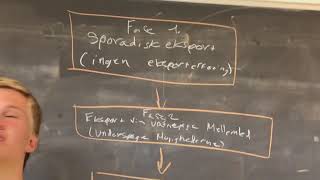 Fase 1
Sporadisk eksport
(ingen eksporterfaring)
Fase 2
Eksport via uafhængige Mellemled
(Undersøge Mulighederne)